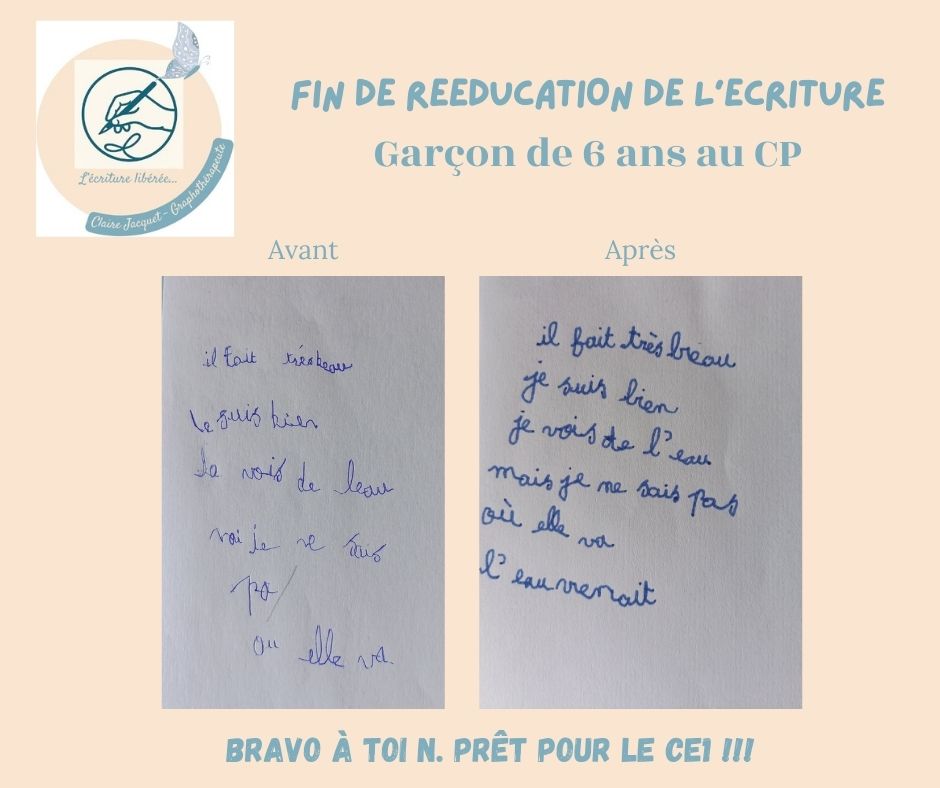 L'écriture libérée...
Claire Jacquet - Graphothérapeute
FIN DE REEDUCATION DE L'ECRITURE
Garçon de 6 ans au CP
Avant
Après
il fait trés beau
je suis bien
Ja vois de leau
voi je ne sais
pa
ou elle va
il fait très breau
je suis bien
je vois de l'eau
mais je ne sais pas
où elle va
l'eau venait
BRAVO À TOI N. PRÊT POUR LE CE1 !!!